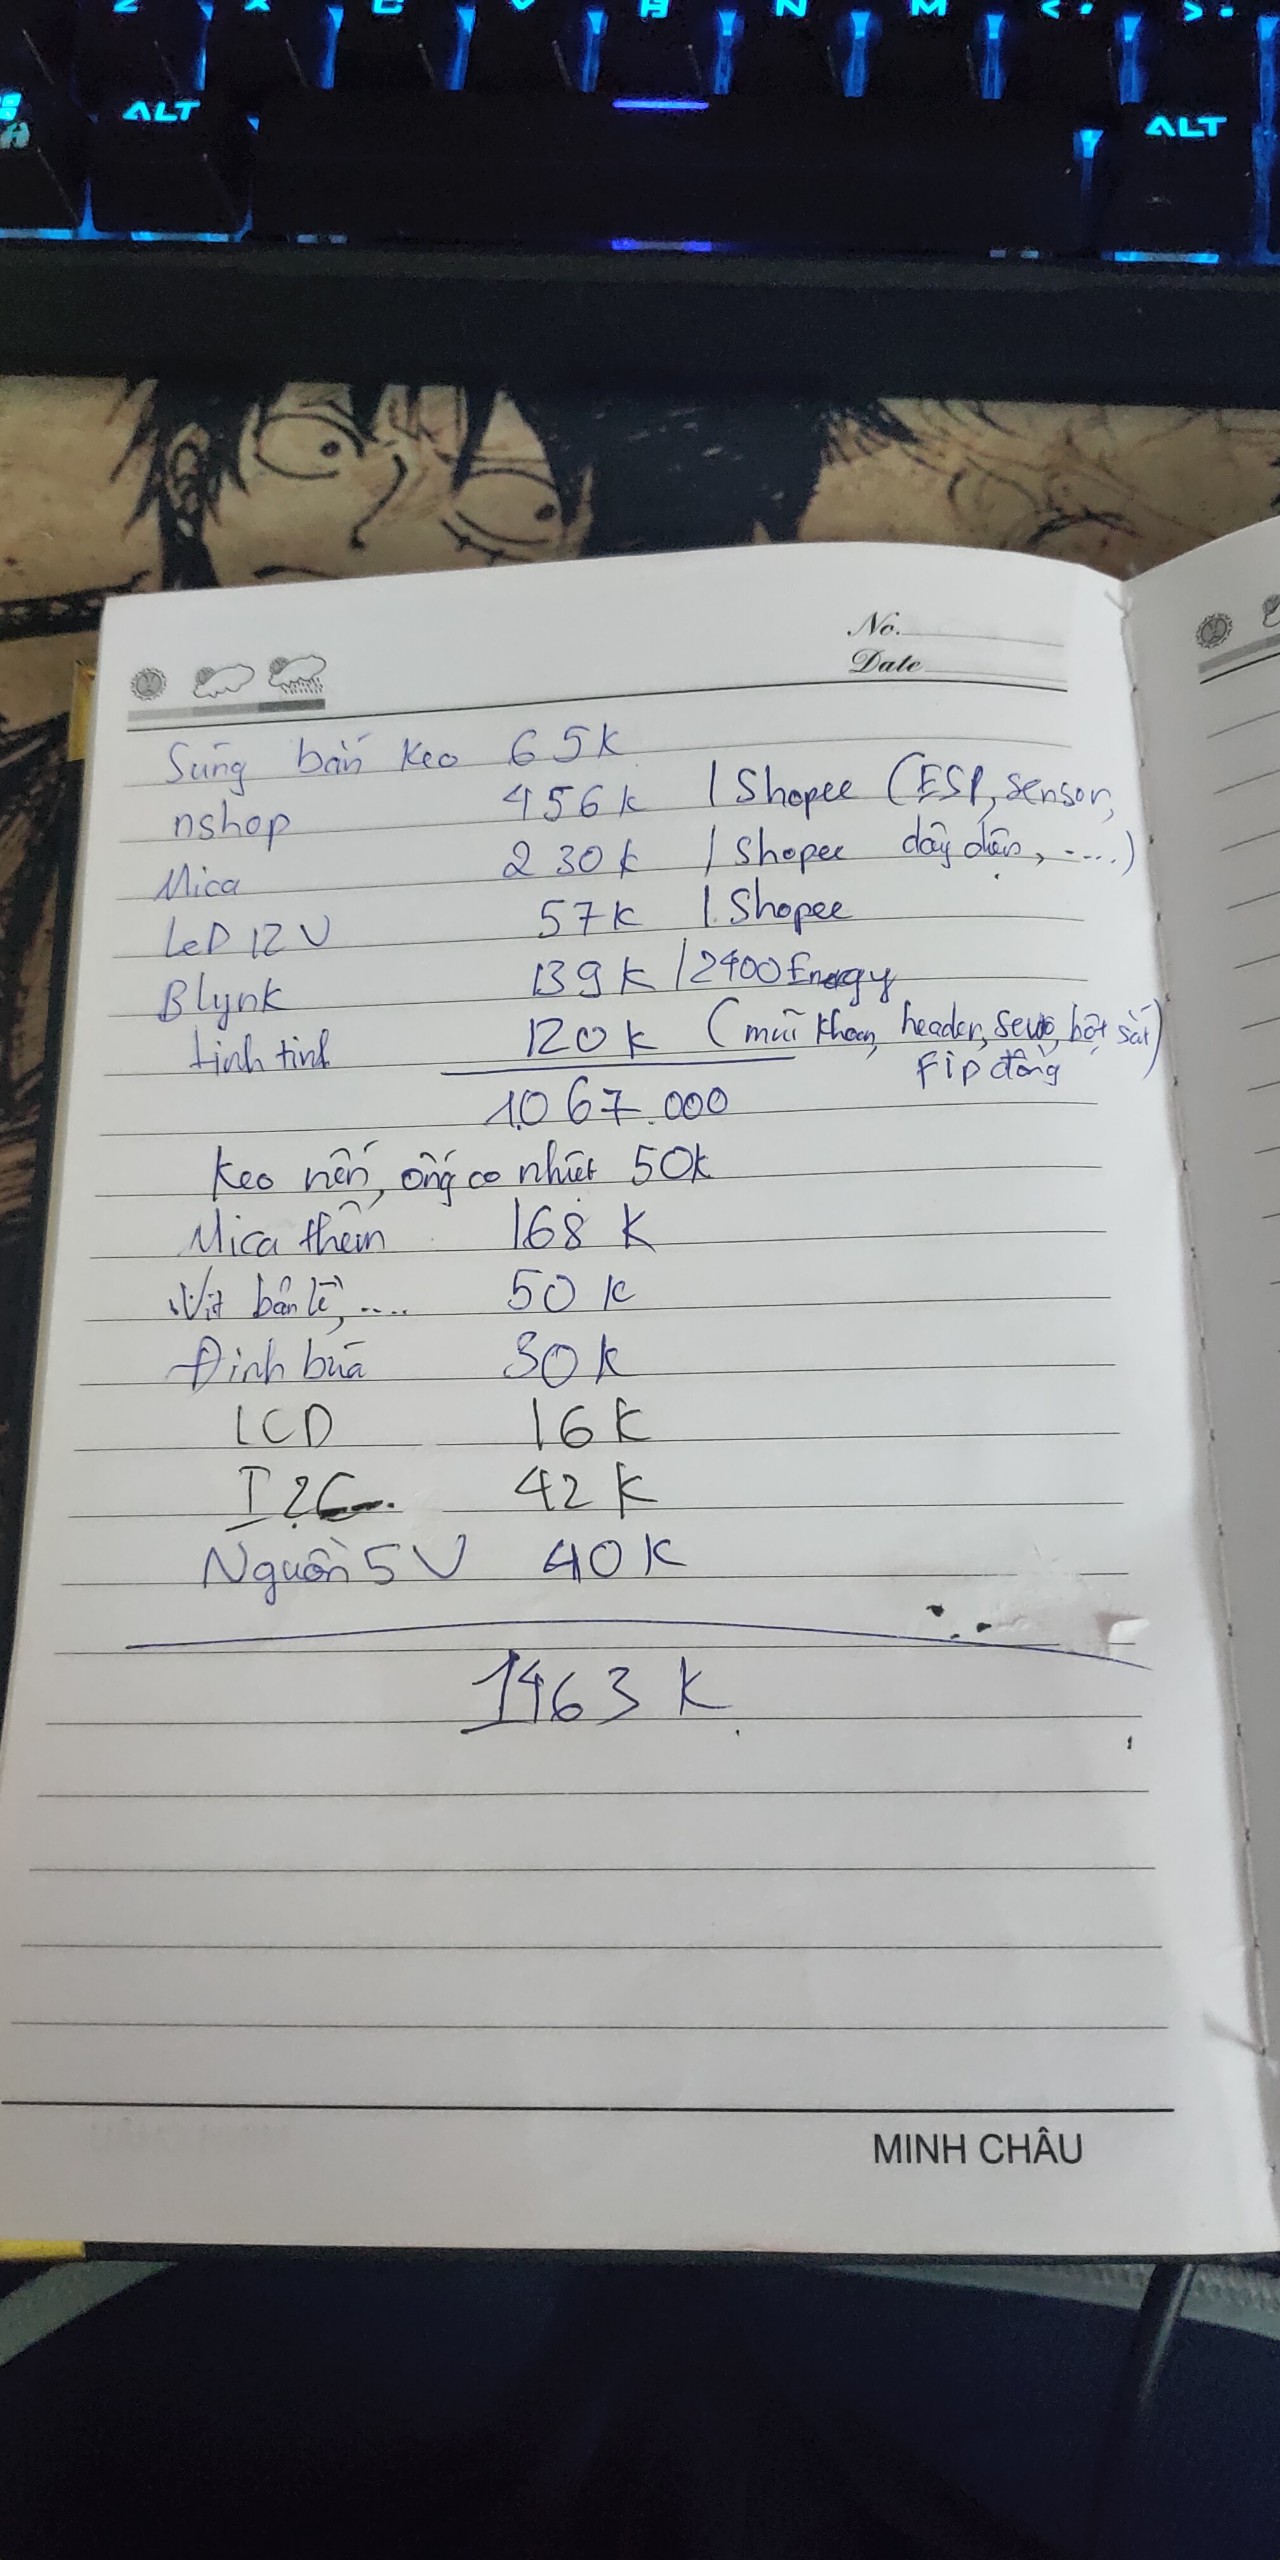 Z X C V B N M < , > .
ALT ALT
No.
Date
Súng bắn keo 65k
nshop 456k / Shopee (ESP, sensor,
Mica 230k / Shopee dây điện, .....)
LeD 12V 57k / Shopee
Blynk 139k / 2400 Energy
tinh tinh 120k (mũi khoan, header, servo, bột sắt)
Fip đồng
1.067.000
Keo nến, ống co nhiệt 50k
Mica thêm 168 K
Vít bản lề, .... 50 k
Đinh búa 30k
LCD 16k
I2C 42k
Nguồn 5V 40k
1463 k
MINH CHÂU